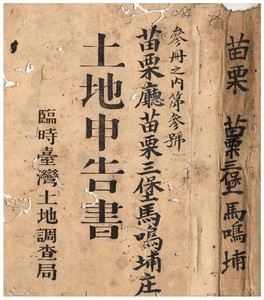 苗栗 苗栗三堡馬鳴埔
參冊之內第參號
苗栗廳苗栗三堡馬鳴埔庄
土地申告書
臨時臺灣土地調查局